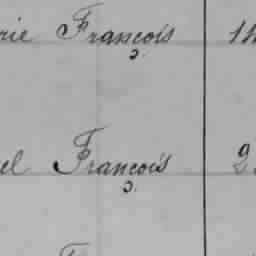 rie François 14
el François 2